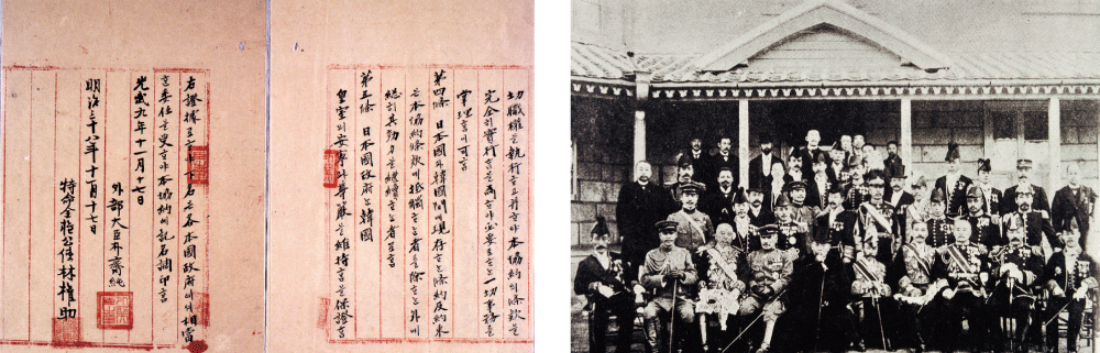 切職權을執行ᄒᆞ고並ᄒᆞ야本協約의條款을
完全히實行ᄒᆞᆷ을爲ᄒᆞ야必要로ᄒᆞ는一切事務를
掌理ᄒᆞᆷ이可홈
第四條 日本國과韓國間에現存ᄒᆞ는條約及約束
은本協約條款에抵觸ᄒᆞ는者를除ᄒᆞ는外에
總히其効力을繼續ᄒᆞ는者로홈
第五條 日本國政府는韓國
皇室의安寧과尊嚴을維持ᄒᆞᆷ을保證홈
右證據로ᄒᆞ야下名은各本國政府에서相當
ᄒᆞᆫ委任을受ᄒᆞ야本協約에記名調印홈
光武九年十一月十七日
外部大臣朴齊純
明治三十八年十一月十七日
特命全權公使林權助